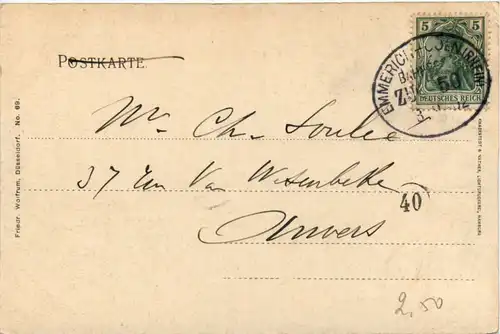 POSTKARTE
5 5
DEUTSCHES REICH
EMMERICH
BAHNPOST
ZUG 50
Mr. Ch. Soulié
37 Van Wesenbeke
40
Anvers
2,50
Friedr. Wolfrum, Düsseldorf. No. 99.